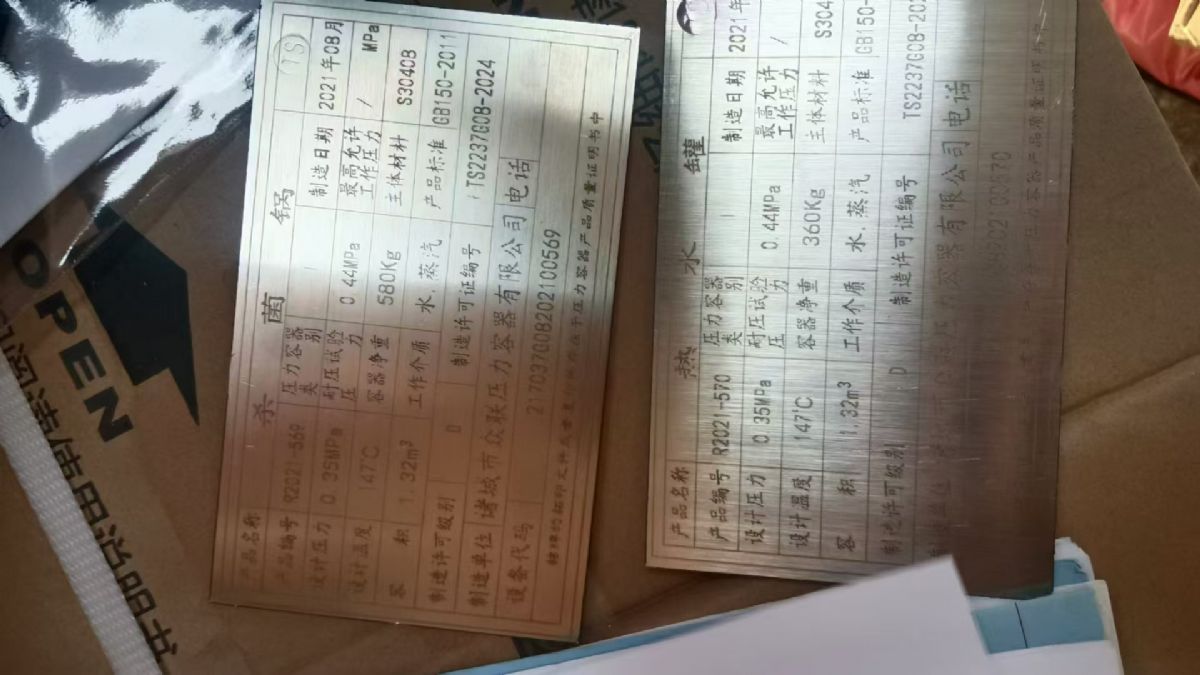 OPEN
杀菌锅
产品名称
产品编号 R2021-569 压力容器类别 I 制造日期 2021年08月
设计压力 0.35MPa 耐压试验压力 0.44MPa 最高允许工作压力 / MPa
设计温度 147℃ 容器净重 580Kg 主体材料 S30408
容积 1.32m³ 工作介质 水、蒸汽 产品标准 GB150-2011
制造许可级别 D 制造许可证编号 TS2237G08-2024
制造单位 诸城市众联压力容器有限公司 电话
设备代码 217037G08202100569
产品名称 热水罐
产品编号 R2021-570 压力容器类别 I 制造日期 2021年
设计压力 0.35MPa 耐压试验压力 0.44MPa 最高允许工作压力 /
设计温度 147℃ 容器净重 360Kg 主体材料 S304
容积 1.32m³ 工作介质 水、蒸汽 产品标准 GB150-20
制造许可级别 D 制造许可证编号 TS2237G08-202
压力容器有限公司 电话